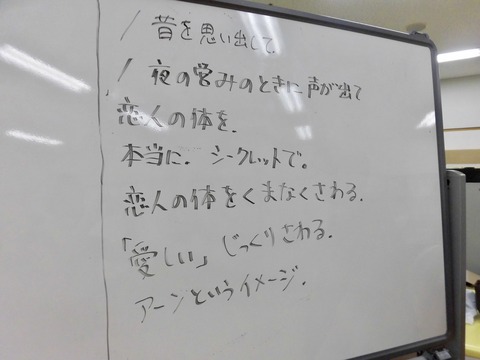 / 昔を思い出して、
/ 夜の営みのときに声が出て
恋人の体を、
本当に、シークレットで。
恋人の体をくまなくさわる、
「愛しい」じっくりさわる、
アーンというイメージ、